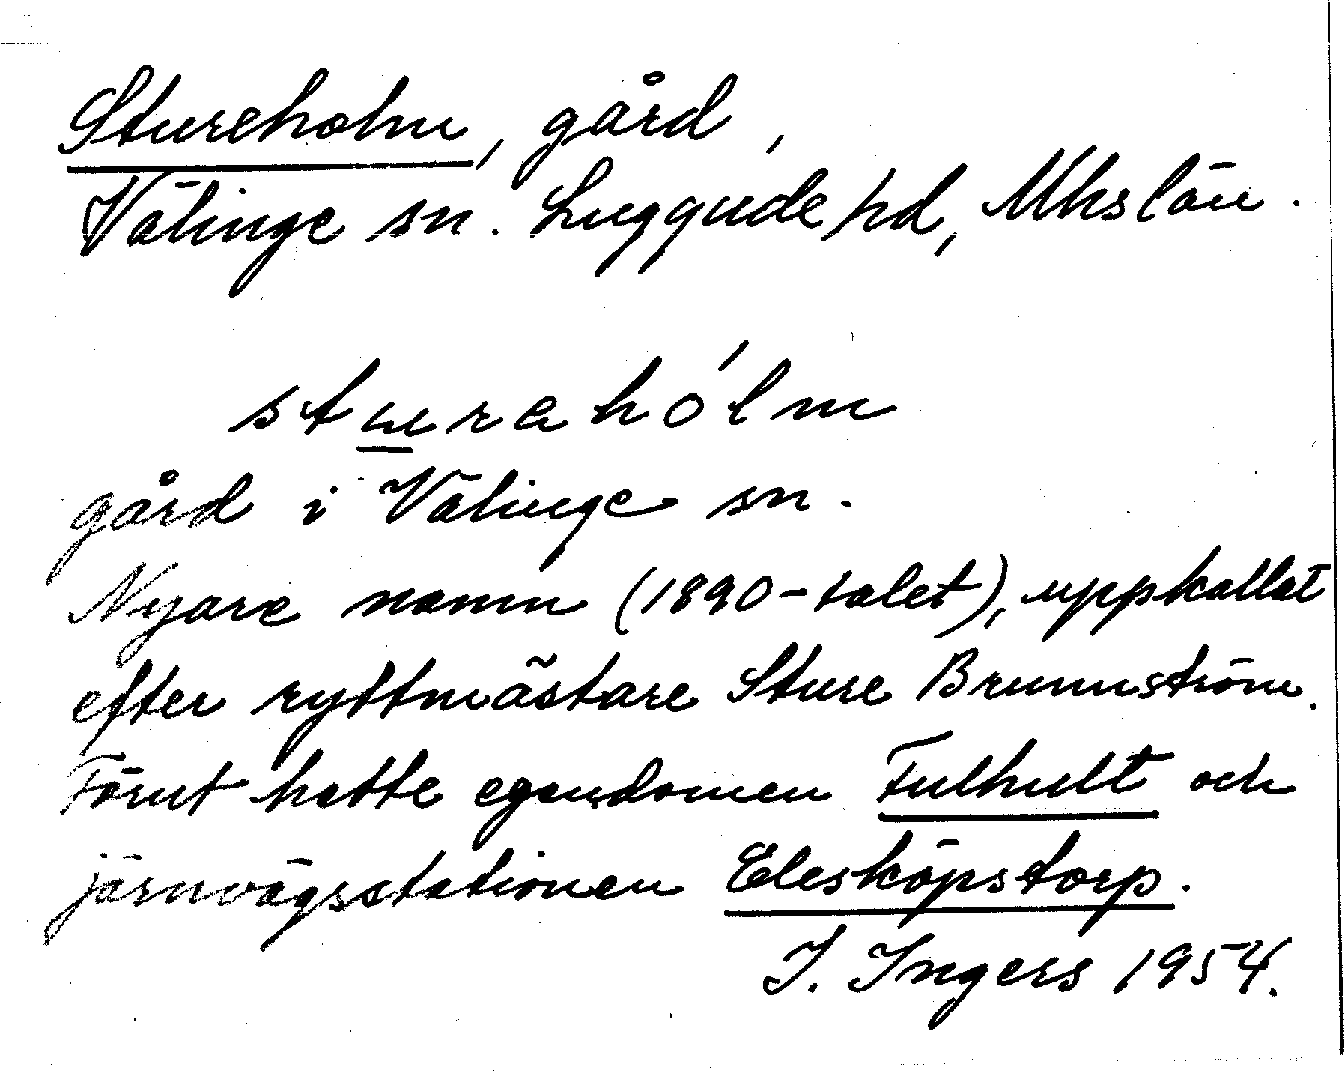 Stureholm, gård,
Välinge sn. Luggude hd, Mhs län.
sturahólm
gård i Välinge sn.
Nyare namn (1890-talet), uppkallat
efter ryttmästare Sture Brunnström.
Förut hette egendomen Fulhult och
järnvägsstationen Elesköpstorp.
I. Ingers 1954.